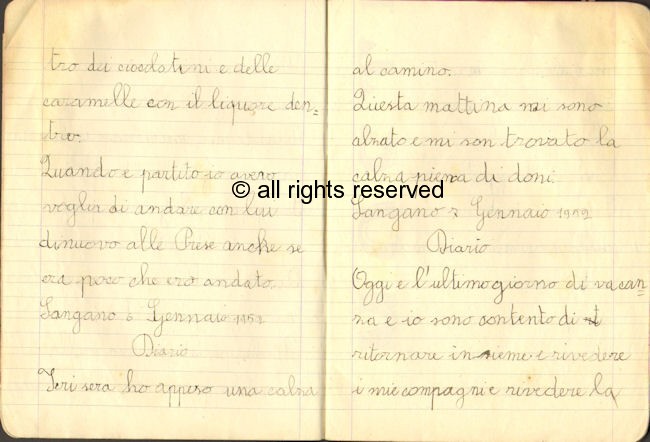 tro dei cioccolatini e delle
caramelle con il liquore den=
tro.
Quando e partito io avevo
voglia di andare con lui
dinuovo alle Prese anche se
era poco che ero andato.
Sangano 6 Gennaio 1952
Diario
Ieri sera ho appeso una calza
al camino.
Questa mattina mi sono
alzato e mi son trovato la
calza piena di doni.
Sangano 7 Gennaio 1952
Diario
Oggi e l'ultimo giorno di vacan=
za e io sono contento di
ritornare insieme e rivedere
i miei compagni e rivedere la
© all rights reserved